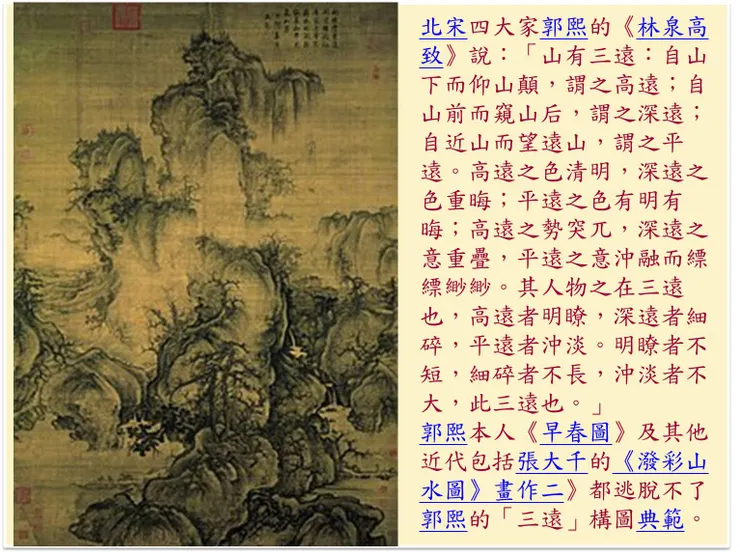 北宋四大家郭熙的《林泉高
致》說：「山有三遠：自山
下而仰山顛，謂之高遠；自
山前而窺山后，謂之深遠；
自近山而望遠山，謂之平
遠。高遠之色清明，深遠之
色重晦；平遠之色有明有
晦；高遠之勢突兀，深遠之
意重疊，平遠之意沖融而縹
縹緲緲。其人物之在三遠
也，高遠者明瞭，深遠者細
碎，平遠者沖淡。明瞭者不
短，細碎者不長，沖淡者不
大，此三遠也。」
郭熙本人《早春圖》及其他
近代包括張大千的《潑彩山
水圖》畫作二》都逃脫不了
郭熙的「三遠」構圖典範。